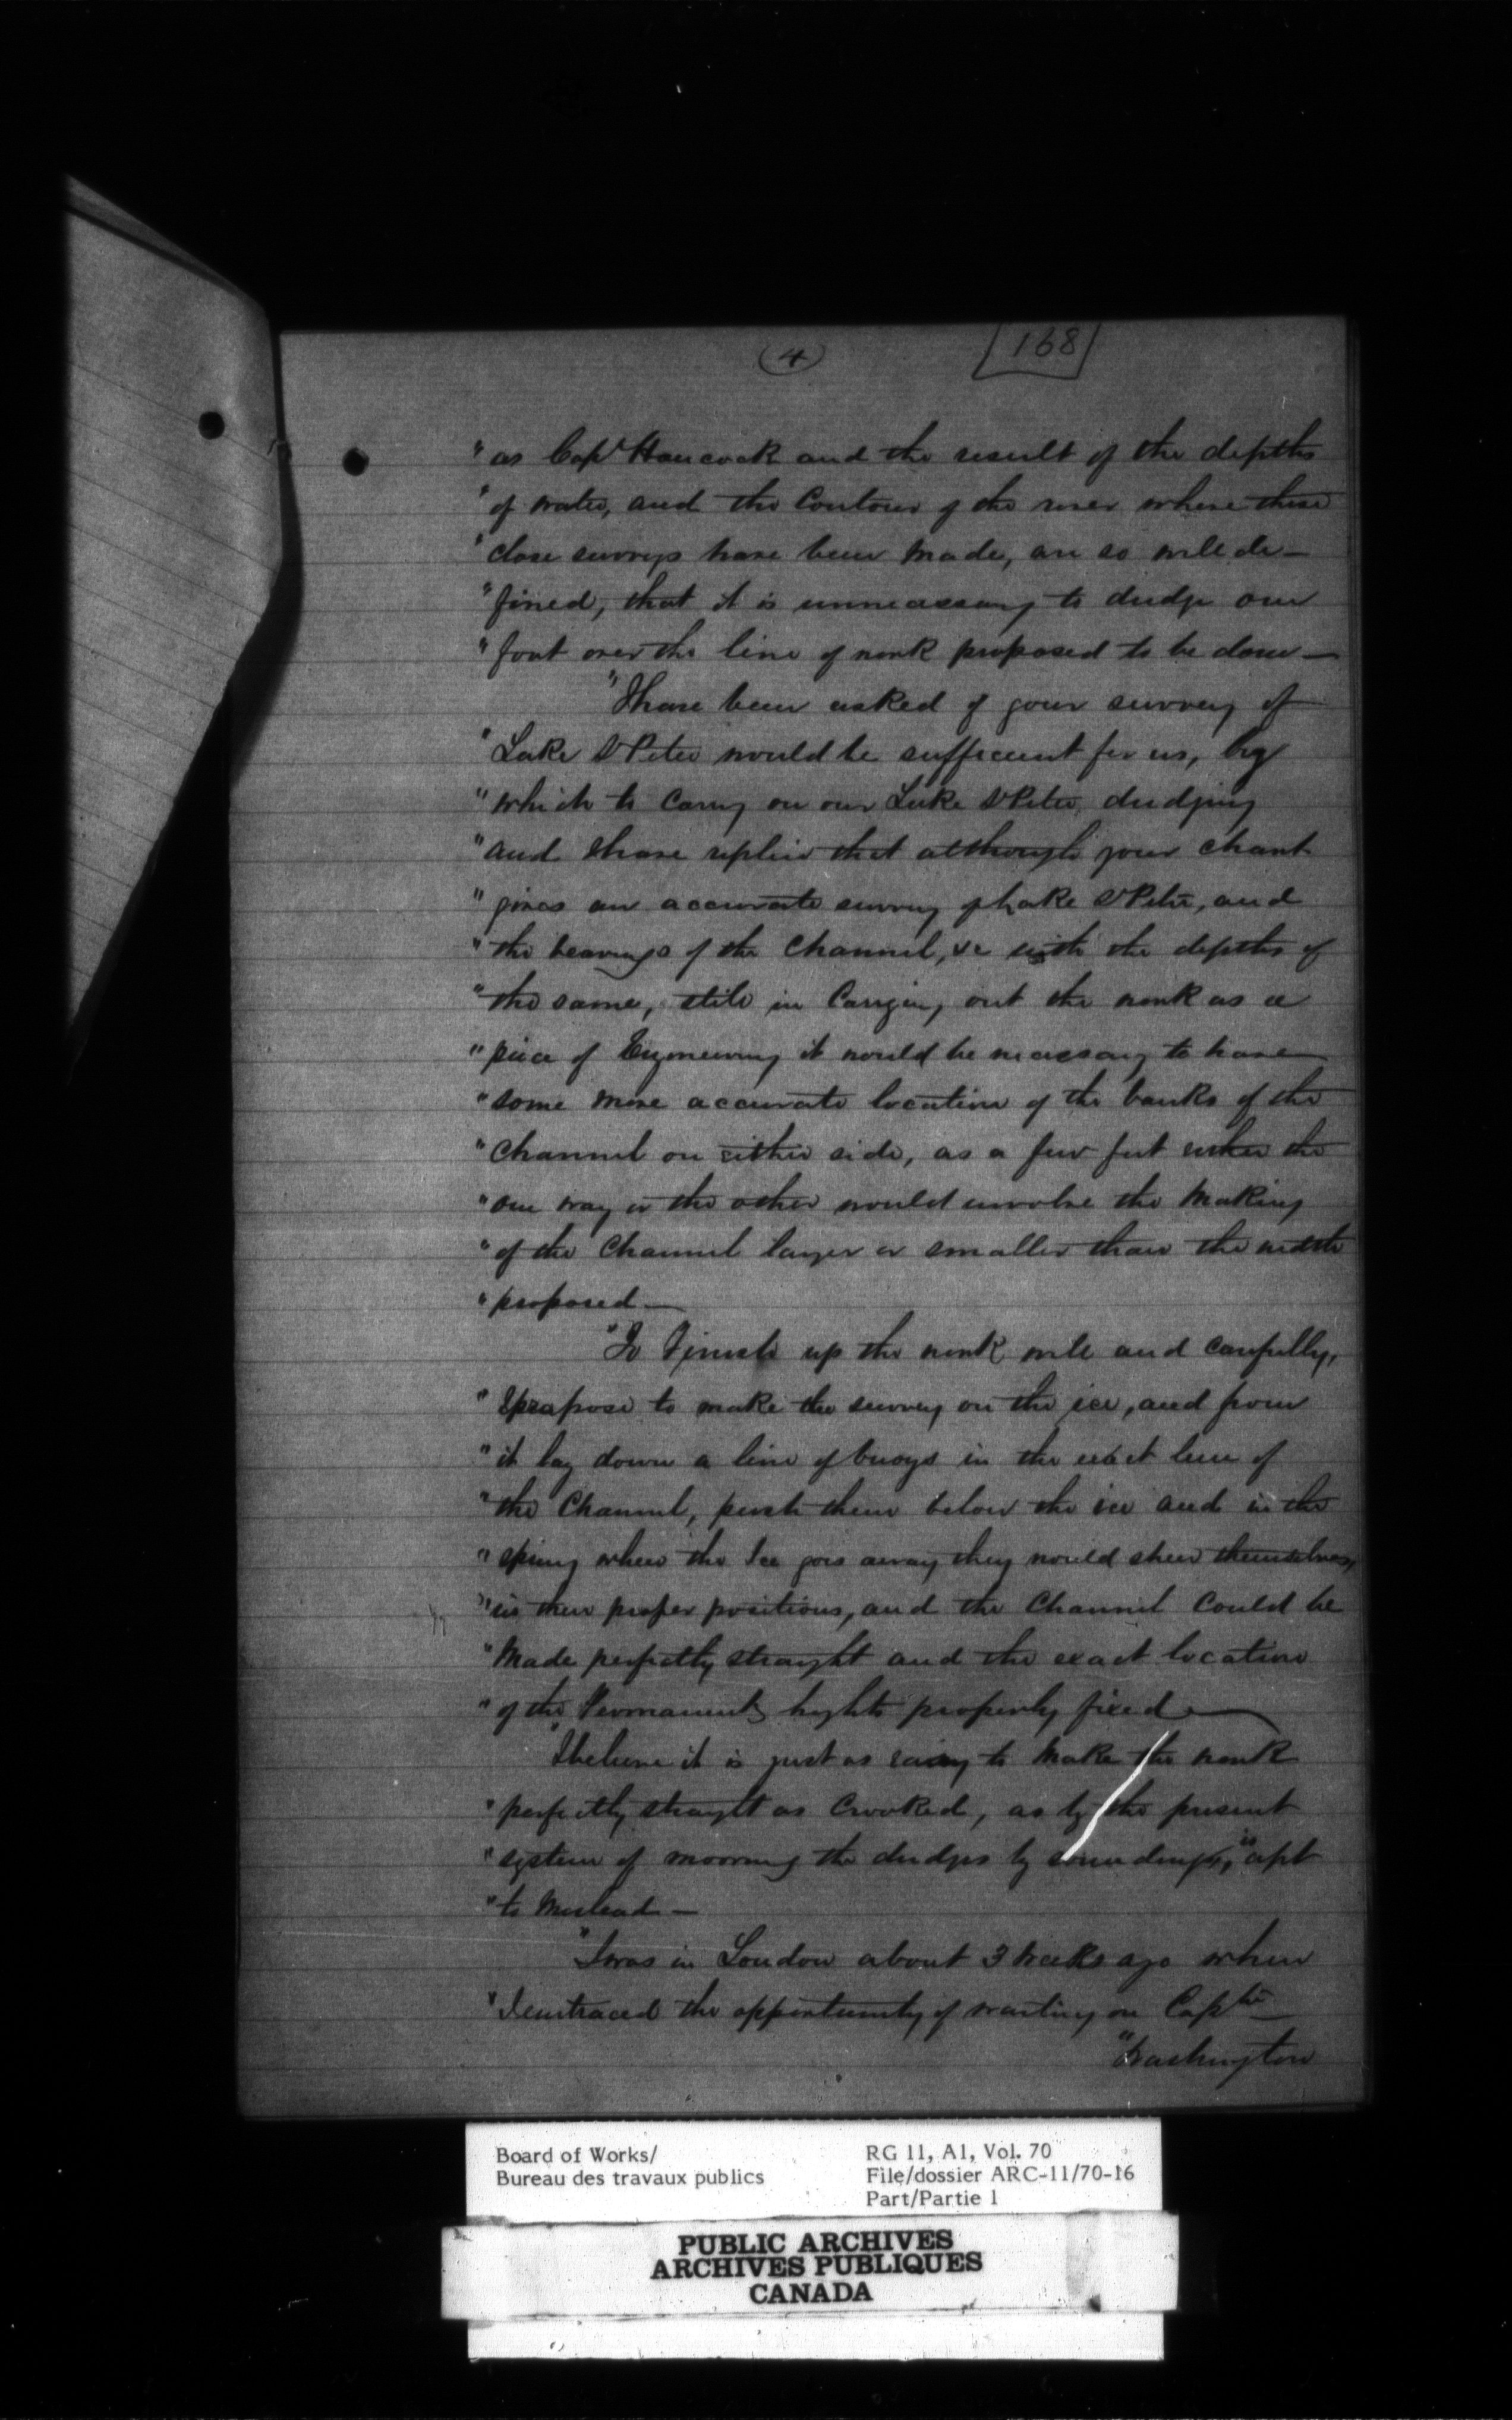 4
168
"as Capt Hancock and the result of the depths
"of water, and the Contour of the river where these
"close surveys have been made, are so well de-
"fined, that it is unnecessary to dredge one
"foot over the line of work proposed to be done —
"I have been asked if your survey of
"Lake St Peter would be sufficient for us, by
"which to Carry on our Lake St Peter dredging
"and I have replied that although your chart
"gives an accurate survey of Lake St Peter, and
"the bearings of the Channel, &c with the depths of
"the same, still in Carrying out the work as a
"piece of Engineering it would be necessary to have
"some more accurate location of the banks of the
"Channel on either side, as a few feet either the
"one way or the other would involve the making
"of the Channel larger or smaller than the width
"proposed —
"To Finish up the work well and carefully,
"I propose to make the survey on the ice, and from
"it lay down a line of buoys in the exact line of
"the Channel, push them below the ice and in the
"spring when the Ice goes away they would shew themselves,
"in their proper positions, and the Channel Could be
"Made perfectly straight and the exact location
"of the Permanent lights properly fixed —
"I believe it is just as easy to Make the work
"perfectly straight as Crooked, as by the present
"system of mooring the dredges by soundings, is apt
"to Mislead —
"I was in London about 3 Weeks ago when
"I embraced the opportunity of waiting on Captn —
"Washington
Board of Works/
Bureau des travaux publics
RG 11, A1, Vol. 70
File/dossier ARC-11/70-16
Part/Partie 1
PUBLIC ARCHIVES
ARCHIVES PUBLIQUES
CANADA